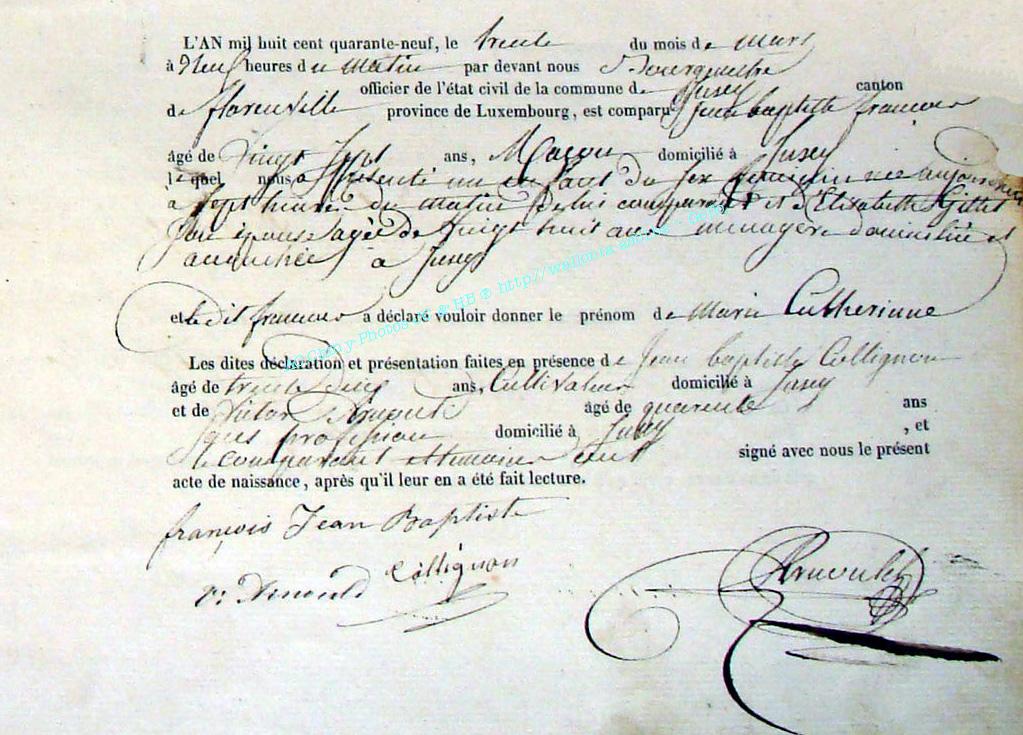 L'AN mil huit cent quarante-neuf, le trente du mois de mars
à Neuf heures du matin par devant nous Bourgmestre
officier de l'état civil de la commune de Jusey canton
de florenville province de Luxembourg, est comparu Jean baptiste francois
âgé de Vingt Sept ans, Maçon domicilié à Jusey
lequel nous a présenté un enfant du sex feminin née aujourdhui
a sept heures du matin de lui comparant et d'Elisabeth Gillet
son épouse agée de Vingt huit ans menagère domiciliée et
accouchée a Jusey
et le dit francois a déclaré vouloir donner le prénom de Marie Catherinne
Les dites déclaration et présentation faites en présence de Jean baptiste Collignon
âgé de trente cinq ans, Cultivateur domicilié à Jusey
et de Victor Arnould âgé de quarente ans
profession domicilié à Jusey , et
le comparant et temoins ont signé avec nous le présent
acte de naissance, après qu'il leur en a été fait lecture.
françois Jean Baptiste
Collignon
v: Arnould
Arnould